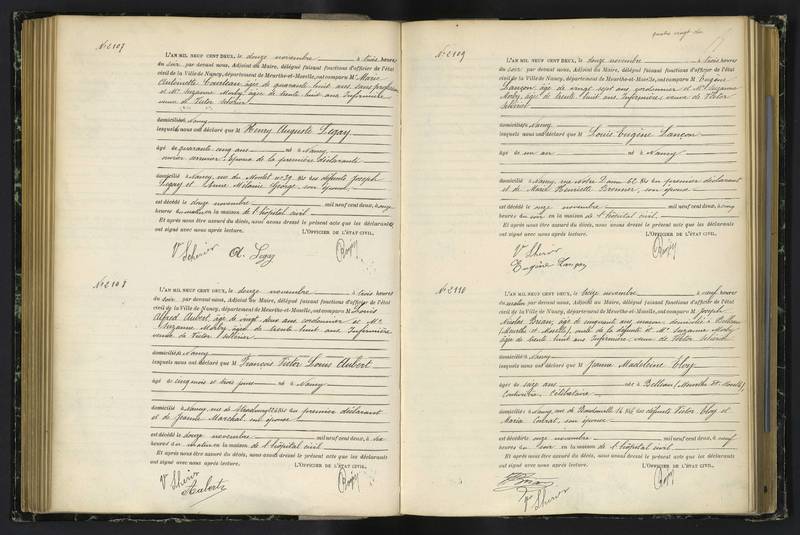 N° 2107
L'AN MIL NEUF CENT DEUX, le douze novembre à trois heures
du soir par devant nous, Adjoint du Maire, délégué faisant fonctions d'officier de l'état
civil de la Ville de Nancy, département de Meurthe-et-Moselle, ont comparu M° Marie
Antoinette âgée de quarante huit ans sans profession
et M° Suzanne âgée de trente huit ans Infirmière
veuve de Victor
domiciliés à Nancy
lesquels nous ont déclaré que M Henry Auguste Legay
âgé de quarante cinq ans né à Nancy
ouvrier serrurier époux de la première déclarante
domicilié à Nancy, rue du Montet n° 39 fils des défunts Joseph
Legay et Anne Mélanie George, son épouse
est décédé le douze novembre mil neuf cent deux, à onze
heures du matin en la maison de l'hôpital civil
Et après nous être assuré du décès, nous avons dressé le présent acte que les déclarants
ont signé avec nous après lecture. L'OFFICIER DE L'ÉTAT CIVIL,
A. Legay
N° 2108
L'AN MIL NEUF CENT DEUX, le douze novembre à trois heures
du soir par devant nous, Adjoint du Maire, délégué faisant fonctions d'officier de l'état
civil de la Ville de Nancy, département de Meurthe-et-Moselle, ont comparu M Louis
Alfred Aubert, âgé de vingt deux ans cordonnier et M°
Suzanne âgée de trente huit ans Infirmière
veuve de Victor
domiciliés à Nancy
lesquels nous ont déclaré que M François Victor Louis Aubert
âgé de cinq mois et trois jours né à Nancy
domicilié à Nancy, rue de Strasbourg fils du premier déclarant
et de Jeanne Marchal, son épouse
est décédé le douze novembre mil neuf cent deux, à dix
heures du matin en la maison de l'hôpital civil
Et après nous être assuré du décès, nous avons dressé le présent acte que les déclarants
ont signé avec nous après lecture. L'OFFICIER DE L'ÉTAT CIVIL,
Aubert
quatre vingt dix
N° 2109
L'AN MIL NEUF CENT DEUX, le douze novembre à trois heures
du soir par devant nous, Adjoint du Maire, délégué faisant fonctions d'officier de l'état
civil de la Ville de Nancy, département de Meurthe-et-Moselle, ont comparu M Eugène
Lançon, âgé de vingt sept ans cordonnier et M° Suzanne
âgée de trente huit ans Infirmière veuve de Victor
domiciliés à Nancy
lesquels nous ont déclaré que M Louis Eugène Lançon
âgé de un an né à Nancy
domicilié à Nancy, rue Notre Dame 62 fils du premier déclarant
et de Marie Henriette Bronner, son épouse
est décédé le onze novembre mil neuf cent deux, à cinq
heures du soir en la maison de l'hôpital civil
Et après nous être assuré du décès, nous avons dressé le présent acte que les déclarants
ont signé avec nous après lecture. L'OFFICIER DE L'ÉTAT CIVIL,
Eugène Lançon
N° 2110
L'AN MIL NEUF CENT DEUX, le treize novembre à neuf heures
du matin par devant nous, Adjoint du Maire, délégué faisant fonctions d'officier de l'état
civil de la Ville de Nancy, département de Meurthe-et-Moselle, ont comparu M Joseph
Nicolas âgé de cinquante ans domicilié à Belleau
(Meurthe et Moselle), de la défunte et M° Suzanne
âgée de trente huit ans Infirmière veuve de Victor
domiciliés à Nancy
lesquels nous ont déclaré que M Jeanne Madeleine Eloy
âgée de seize ans née à Belleau (Meurthe et Moselle),
Couturière, Célibataire
domiciliée à Nancy, rue de fille des défunts Victor Eloy et
Maria son épouse
est décédée onze novembre mil neuf cent deux, à neuf
heures du soir en la maison de l'hôpital civil
Et après nous être assuré du décès, nous avons dressé le présent acte que les déclarants
ont signé avec nous après lecture. L'OFFICIER DE L'ÉTAT CIVIL,